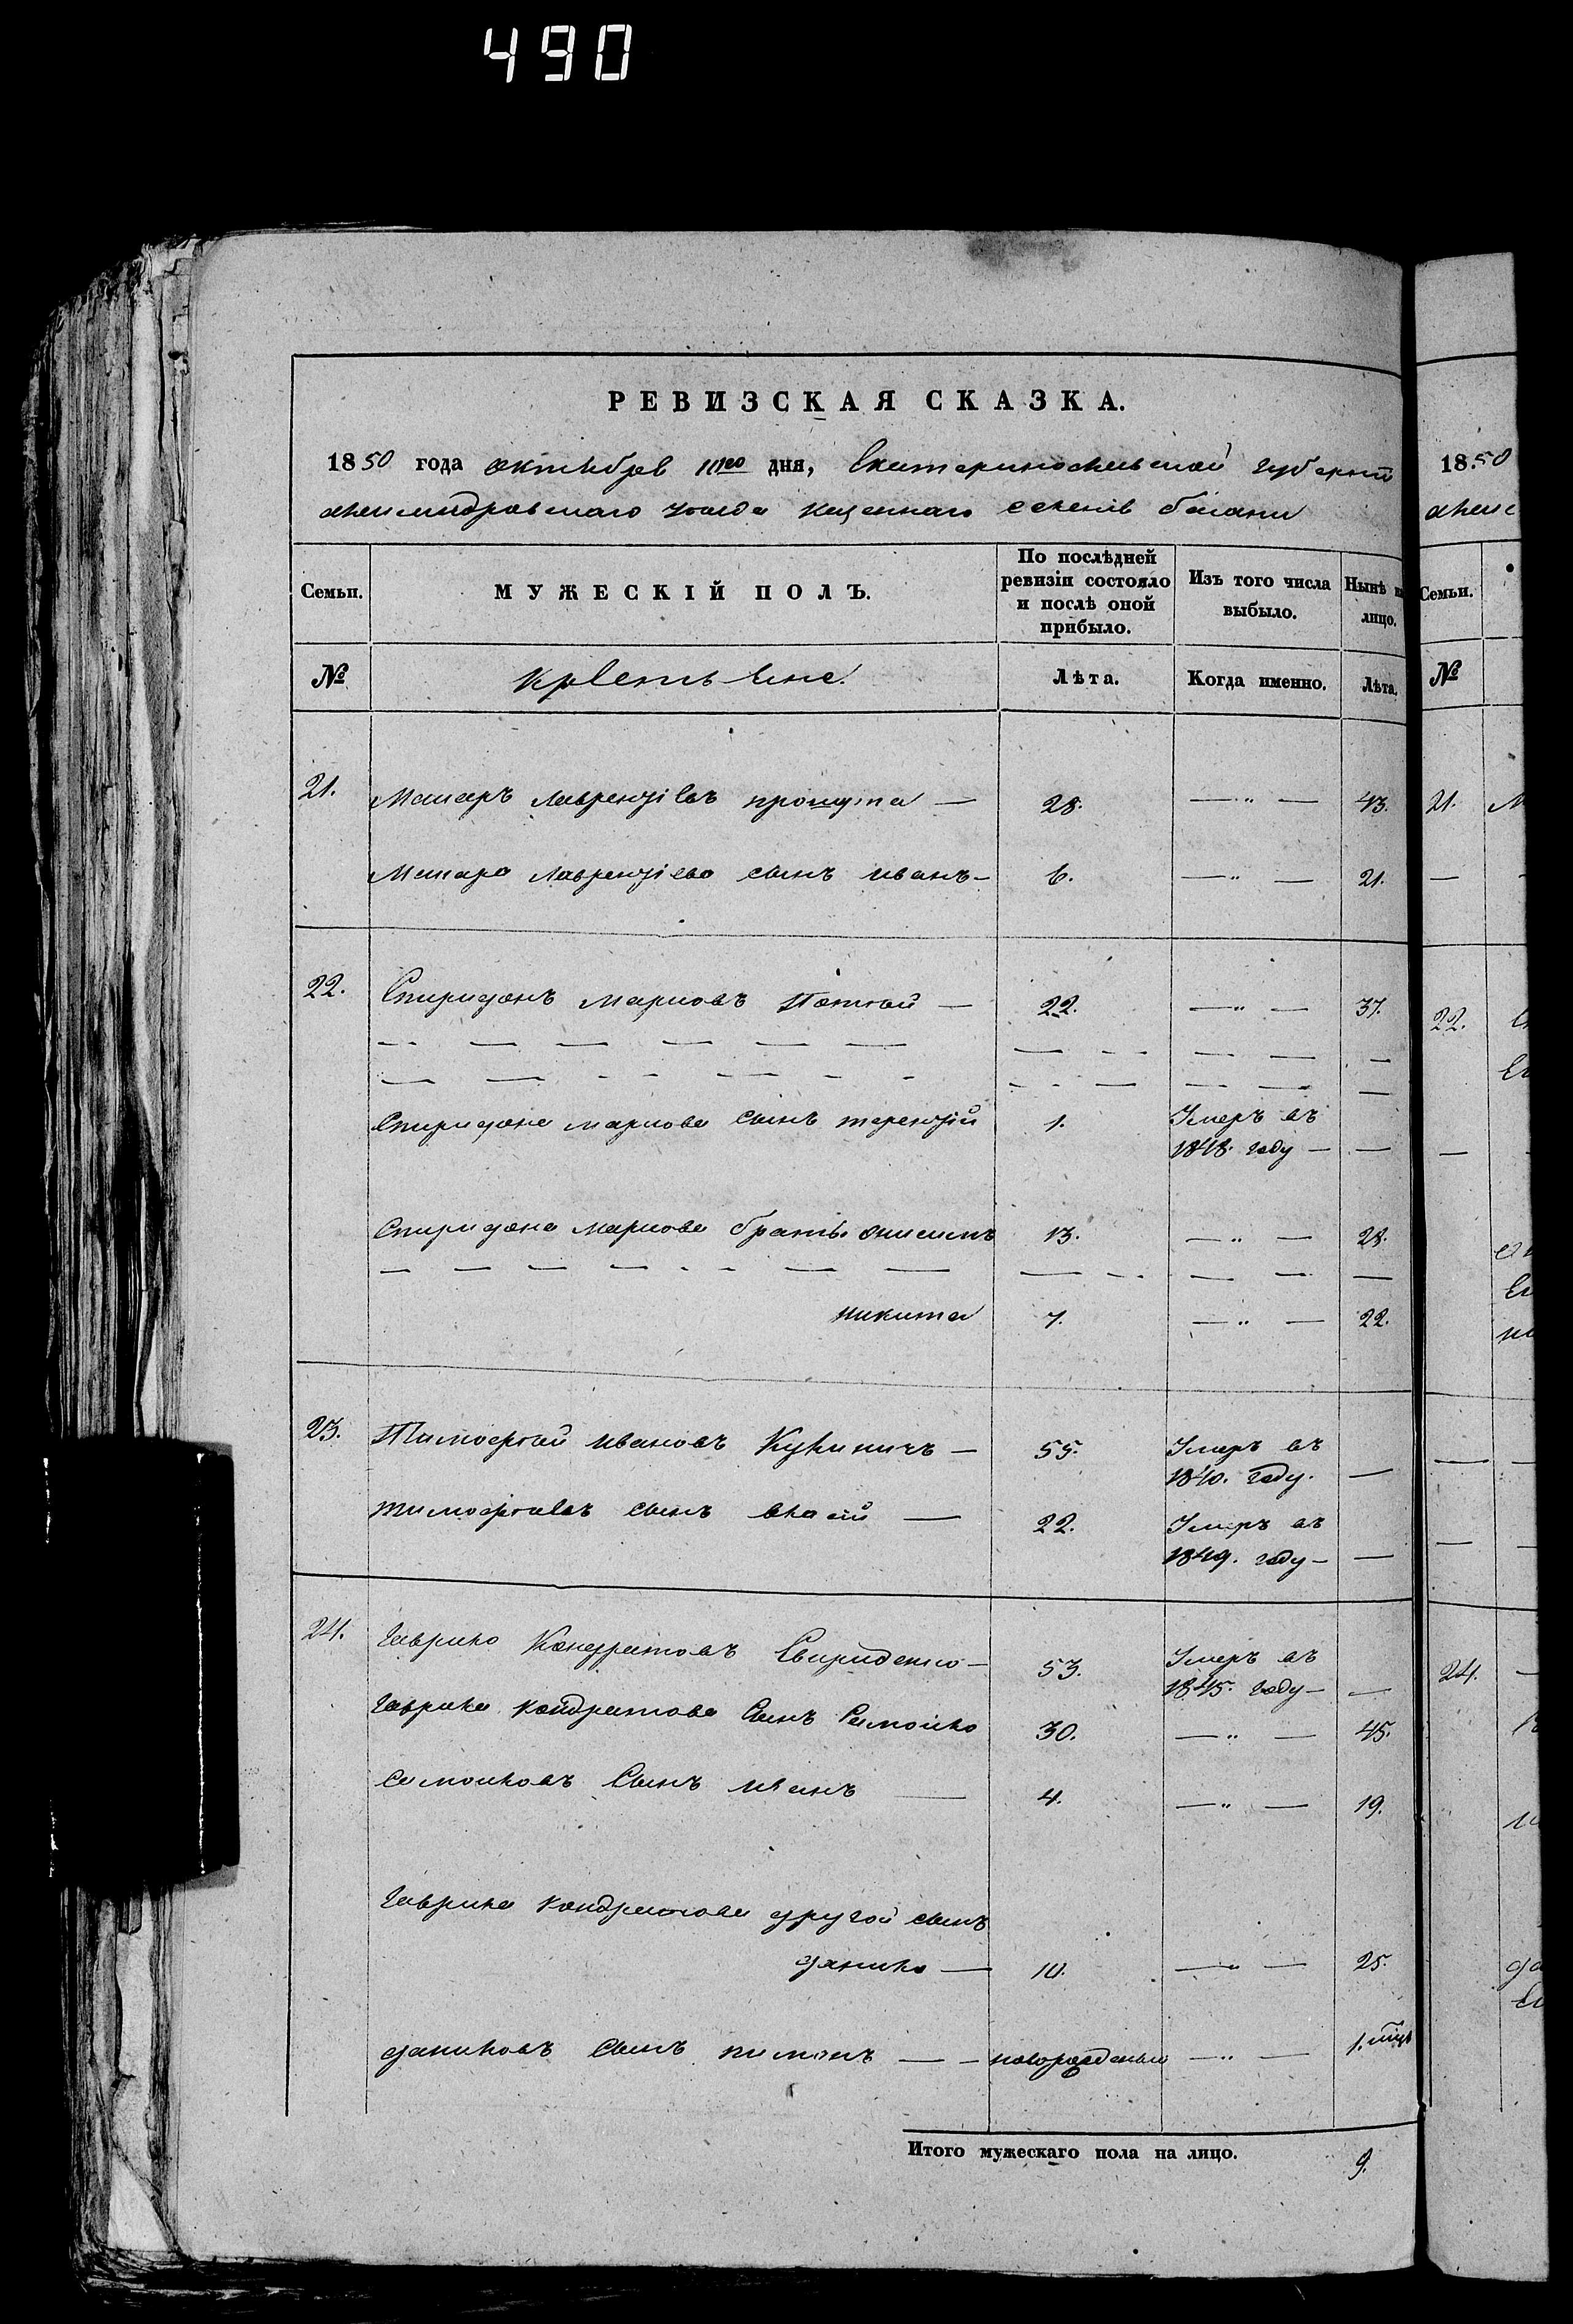 490
РЕВИЗСКАЯ СКАЗКА.
1850 года октября 10го дня, Екатеринославской губерніи
александровскаго уезда казеннаго селенія
Семьи. МУЖЕСКІЙ ПОЛЪ. По послѣдней ревизіи состояло и послѣ оной прибыло. Изъ того числа выбыло. Нынѣ на лицо.
№ крестьяне. Лѣта. Когда именно. Лѣта.
21. Макаръ Лаврентіевъ — 28. — „ — 43.
Макара Лаврентіева сынъ иванъ — 6. — „ — 21.
22. Спиридонъ Марковъ — 22. — „ — 37.
Спиридона маркова сынъ терентій 1. Умеръ въ
1848. году — —
Спиридона маркова братья онисимъ 13. — „ — 28.
никита 7. — „ — 22.
23. Тимофей ивановъ — 55. Умеръ въ
1840. году. —
тимофеевъ сынъ власій — 22. Умеръ въ
1849. году — —
24. Гаврило Кондратовъ Свириденко — 53. Умеръ въ
1845. году — —
Гаврила кондратова Сынъ Самойло 30. — „ — 45.
самойловъ Сынъ иванъ — 4. — „ — 19.
Гаврила кондратова другой сынъ
данило — 10. — „ — 25.
даниловъ сынъ пимонъ — — новорожденый — „ — 1.
Итого мужескаго пола на лицо. 9.
1850
Семьи.
№
21.
22.
24.